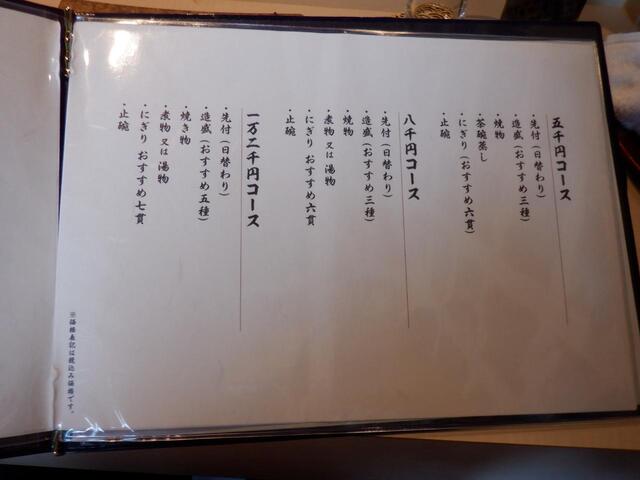 五千円コース
・先付(日替わり)
・造盛(おすすめ三種)
・焼物
・茶碗蒸し
・にぎり(おすすめ六貫)
・止碗
八千円コース
・先付(日替わり)
・造盛(おすすめ三種)
・焼物
・煮物 又は 湯物
・にぎり おすすめ六貫
・止碗
一万二千円コース
・先付(日替わり)
・造盛(おすすめ五種)
・焼き物
・煮物 又は 湯物
・にぎり おすすめ七貫
・止碗
※価格表記は税込み価格です。